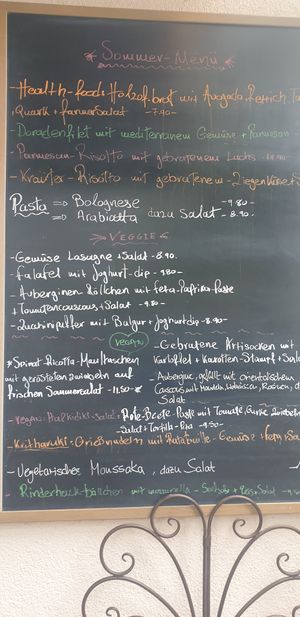 * Sommer-Menü *
- Health-foods Holzofbrot mit Avogado, Rettich,
Quark + farmersalat - 7.90 -
- Doradenfilet mit mediterranem Gemüse + Parmesan
- Parmesan-Risotto mit gebratenem Lachs
- Kräuter-Risotto mit gebratenem - Ziegenkäse +
Pasta => Bolognese - 9.80 -
=> Arabiatta dazu Salat - 8.90 -
* VEGGIE *
- Gemüse Lasagne + Salat - 8.90.
- Falafel mit Joghurt-dip - 9.80 -
- Auberginen Röllchen mit feta-Paprika-Paste
+ Tomatencouscous + Salat - 9.80 -
- Zucchinipuffer mit Bulgur + Joghurtdip - 8.90 -
VEGAN
- Gebratene Artisocken mit
Kartoffel + Karotten-Stampf + Salat
* Spinat-Ricotta-Maultaschen
mit gerösteten Zwiebeln auf
frischen Sommersalat - 11.50 - €
- Aubergine, gefüllt mit orientalischem
Couscous mit Mandeln,
Salat
- VEGAN: Halkidiki-Salat: Rote-Beete-Paste mit Tomate, Gurke, Zwiebeln
- Salat + Tortilla - 9.50 -
- Kritharaki: Griesnudeln mit Ratatouille-Gemüse + feta + Salat
- Vegetarisches Moussaka, dazu Salat
- Rinderhack-bällchen mit + Salat